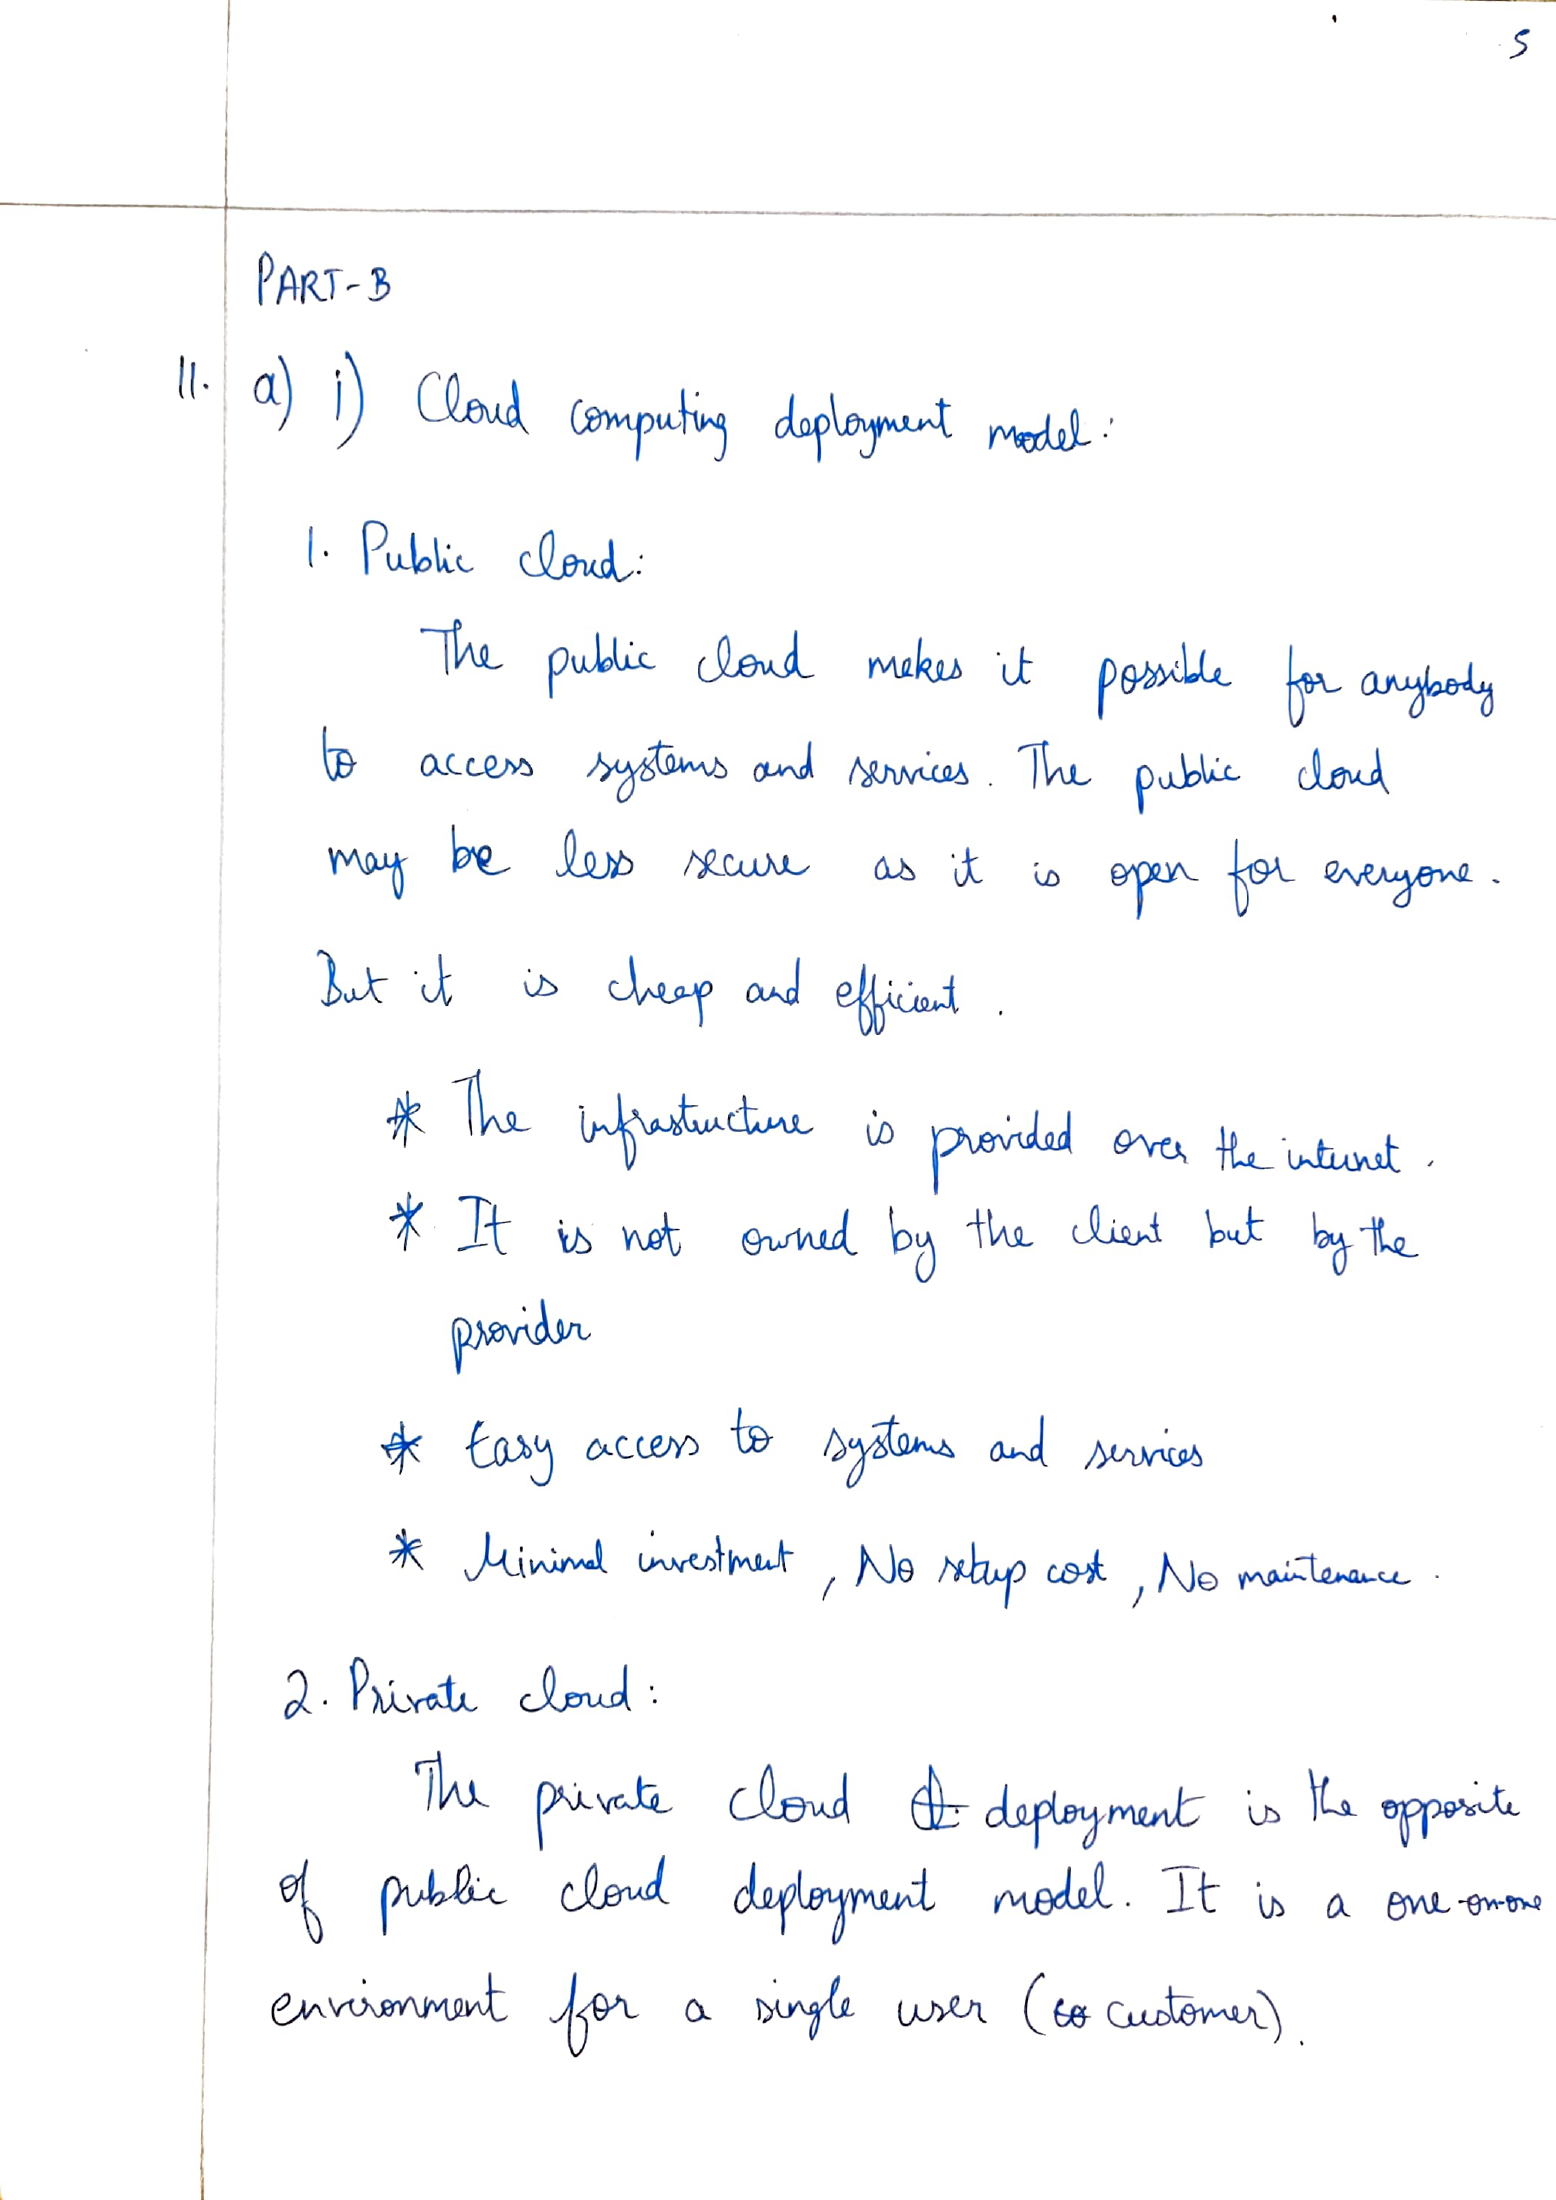 5
PART-B
11. a) i) Cloud computing deployment model:
1. Public cloud:
The public cloud makes it possible for anybody
to access systems and services. The public cloud
may be less secure as it is open for everyone.
But it is cheap and efficient.
* The infrastructure is provided over the internet.
* It is not owned by the client but by the
provider
* Easy access to systems and services
* Minimal investment, No setup cost, No maintenance.
2. Private cloud:
The private cloud deployment is the opposite
of public cloud deployment model. It is a one-on-one
environment for a single user (customer).